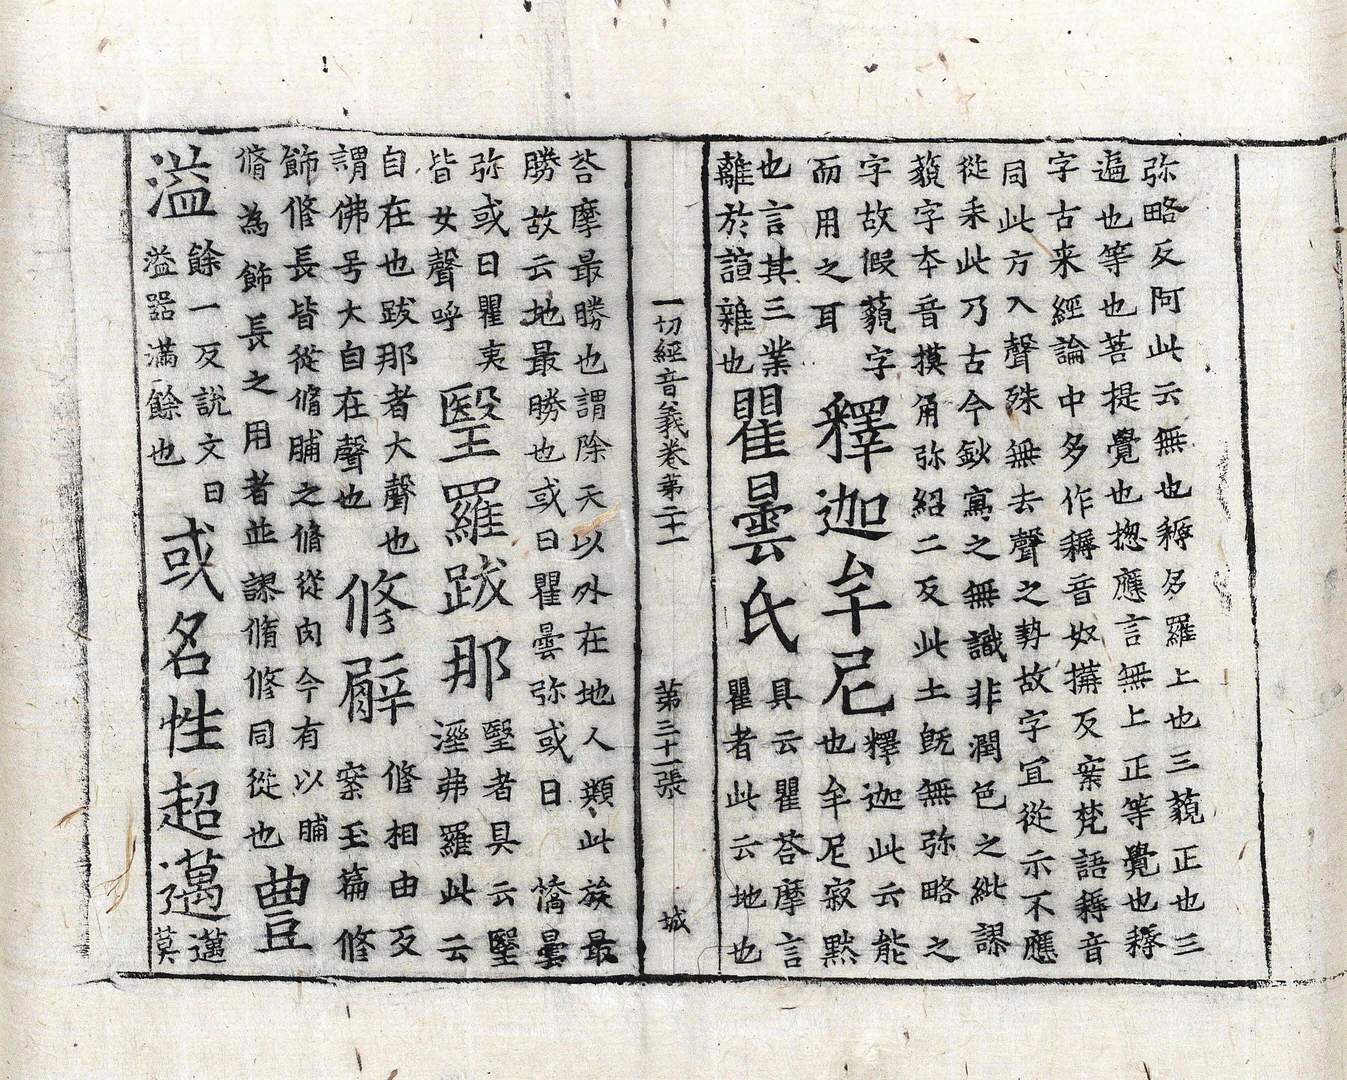 弥略反阿此云無也耨多羅上也三藐正也三
遍也等也菩提覺也惣應言無上正等覺也耨
字古来經論中多作耨音奴搆反案梵語耨音
同此方入聲殊無去聲之勢故字宜從示不應
從耒此乃古今鈔寫之無識非潤色之紕謬
藐字夲音摸角弥紹二反此土既無弥略之
字故假藐字
而用之耳
釋迦牟尼
釋迦此云能
也牟尼寂黙
也言其三業
離於諠雜也
瞿曇氏
具云瞿荅摩言
瞿者此云地也
一切經音義卷第二十一 第三十一張 城
荅摩最勝也謂除天以外在地人類此族最
勝故云地最勝也或曰瞿曇弥或曰憍曇
弥或曰瞿夷
皆女聲呼
瑿羅跋那
瑿者具云瑿
湮弗羅此云
自在也跋那者大聲也
謂佛号大自在聲也
修臂
修相由反
案玉篇修
飾修長皆從脩脯之脩從肉今有以脯
脩為飾長之用者並謬脩修同從也
豊
溢
餘一反說文曰
溢器滿餘也
或名性超邁
邁
莫